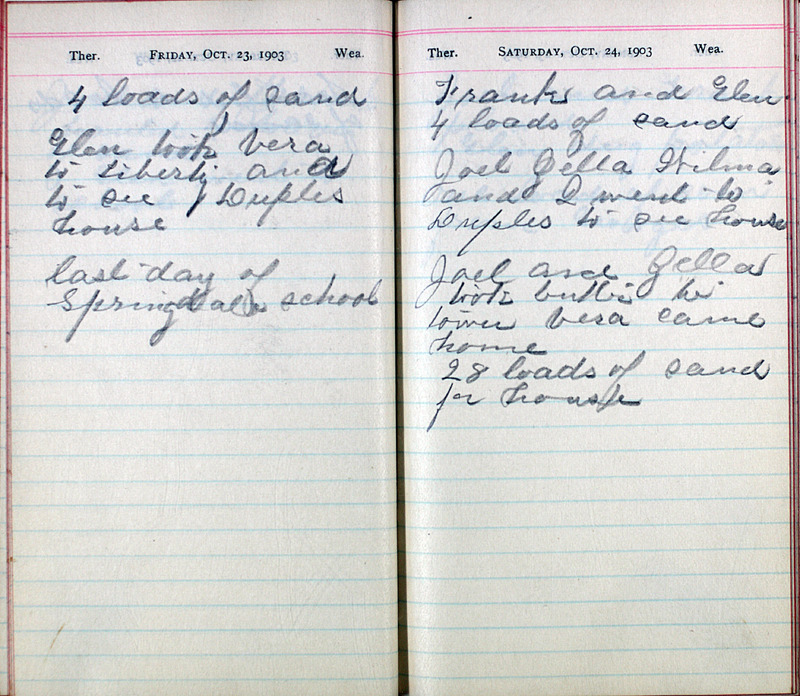 Ther. FRIDAY, OCT. 23, 1903 Wea.
4 loads of sand
Glen took Vera
to Liberti and
to see J Duples
house
last day of
Springdale school
Ther. SATURDAY, OCT. 24, 1903 Wea.
Frank and Glen
4 loads of sand
Joel Zella Wilma
and I went to
Duples to see house
Joel and Zella
took butter to
town Vera came
home
28 loads of sand
for house